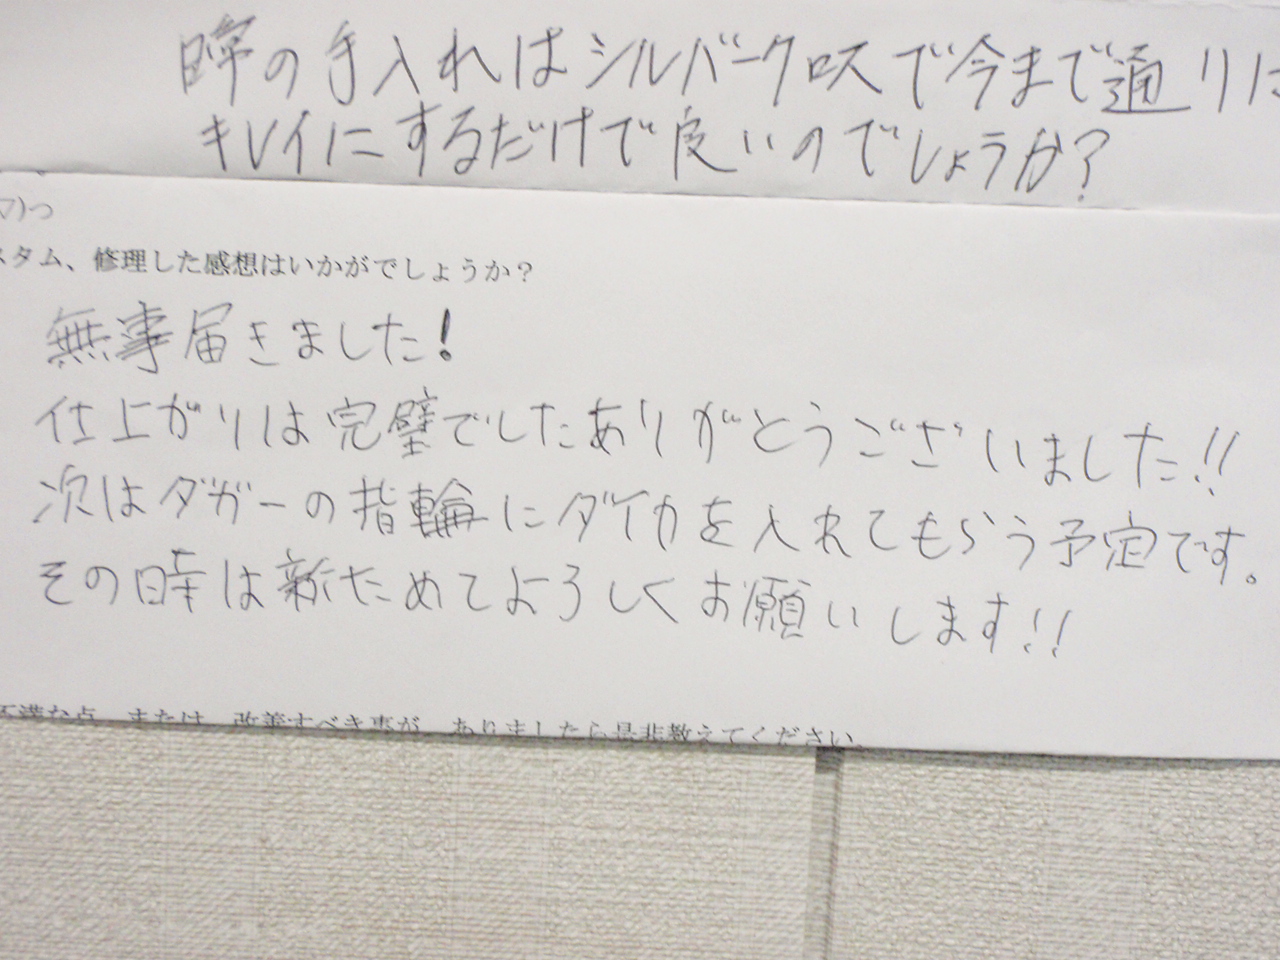 時の手入れはシルバークロスで今まで通りに
キレイにするだけで良いのでしょうか?
スタム、修理した感想はいかがでしょうか?
無事届きました!
仕上がりは完璧でしたありがとうございました!!
次はダガーの指輪にダイカを入れてもらう予定です。
その時は新ためてよろしくお願いします!!
不満な点、または、改善すべき事が、ありましたら是非教えてください。